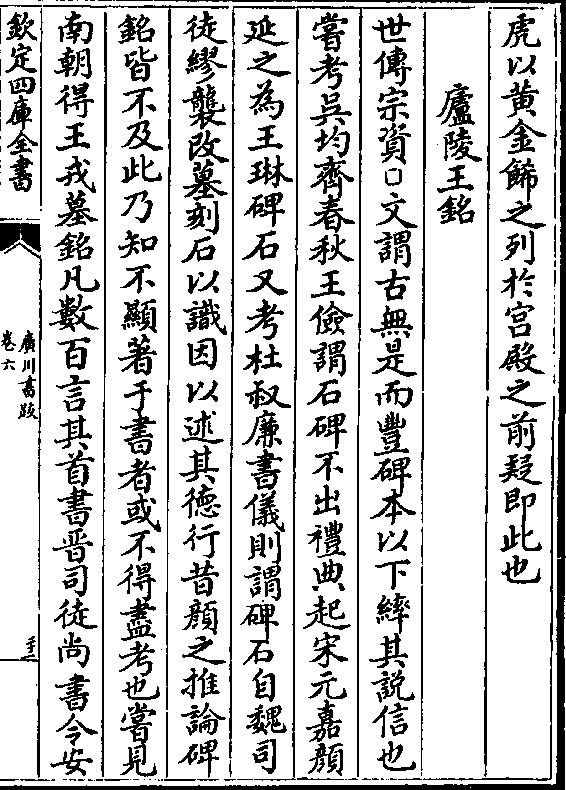 虎以黃金飾之列於宮殿之前疑即此也
廬陵王銘
世傳宗資□文謂古無是而豐碑本以下繂其説信也
嘗考吳均齊春秋王儉謂石碑不出禮典起宋元嘉顔
延之為王琳碑石又考杜叔廉書儀則謂碑石自魏司
徒繆襲改墓刻石以識因以述其徳行昔顔之推論碑
銘皆不及此乃知不顯著于書者或不得盡考也嘗見
南朝得王戎墓銘凡數百言其首書晉司徒尚書令安
欽定四庫全書
廣川書跋
卷六